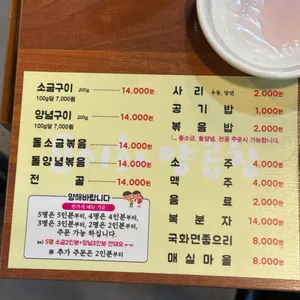 소금구이 200g 14,000원
100g당 7,000원
양념구이 200g 14,000원
100g당 7,000원
돌소금볶음 14,000원
돌양념볶음 14,000원
전 골 14,000원
양해바랍니다
5명은 5인분부터, 4명은 4인분부터,
3명은 3인분부터, 2명은 2인분부터,
주문 가능 하십니다.
ex) 5명 소금2인분+양념3인분 안돼요ㅜㅜ
※ 추가 주문은 2인분부터
사 리 우동, 당면 2,000원
공 기 밥 1,000원
볶 음 밥 2,000원
소 주 4,000원
맥 주 4,000원
음 료 2,000원
복 분 자 14,000원
국화면종으리 8,000원
매 실 마 을 8,000원